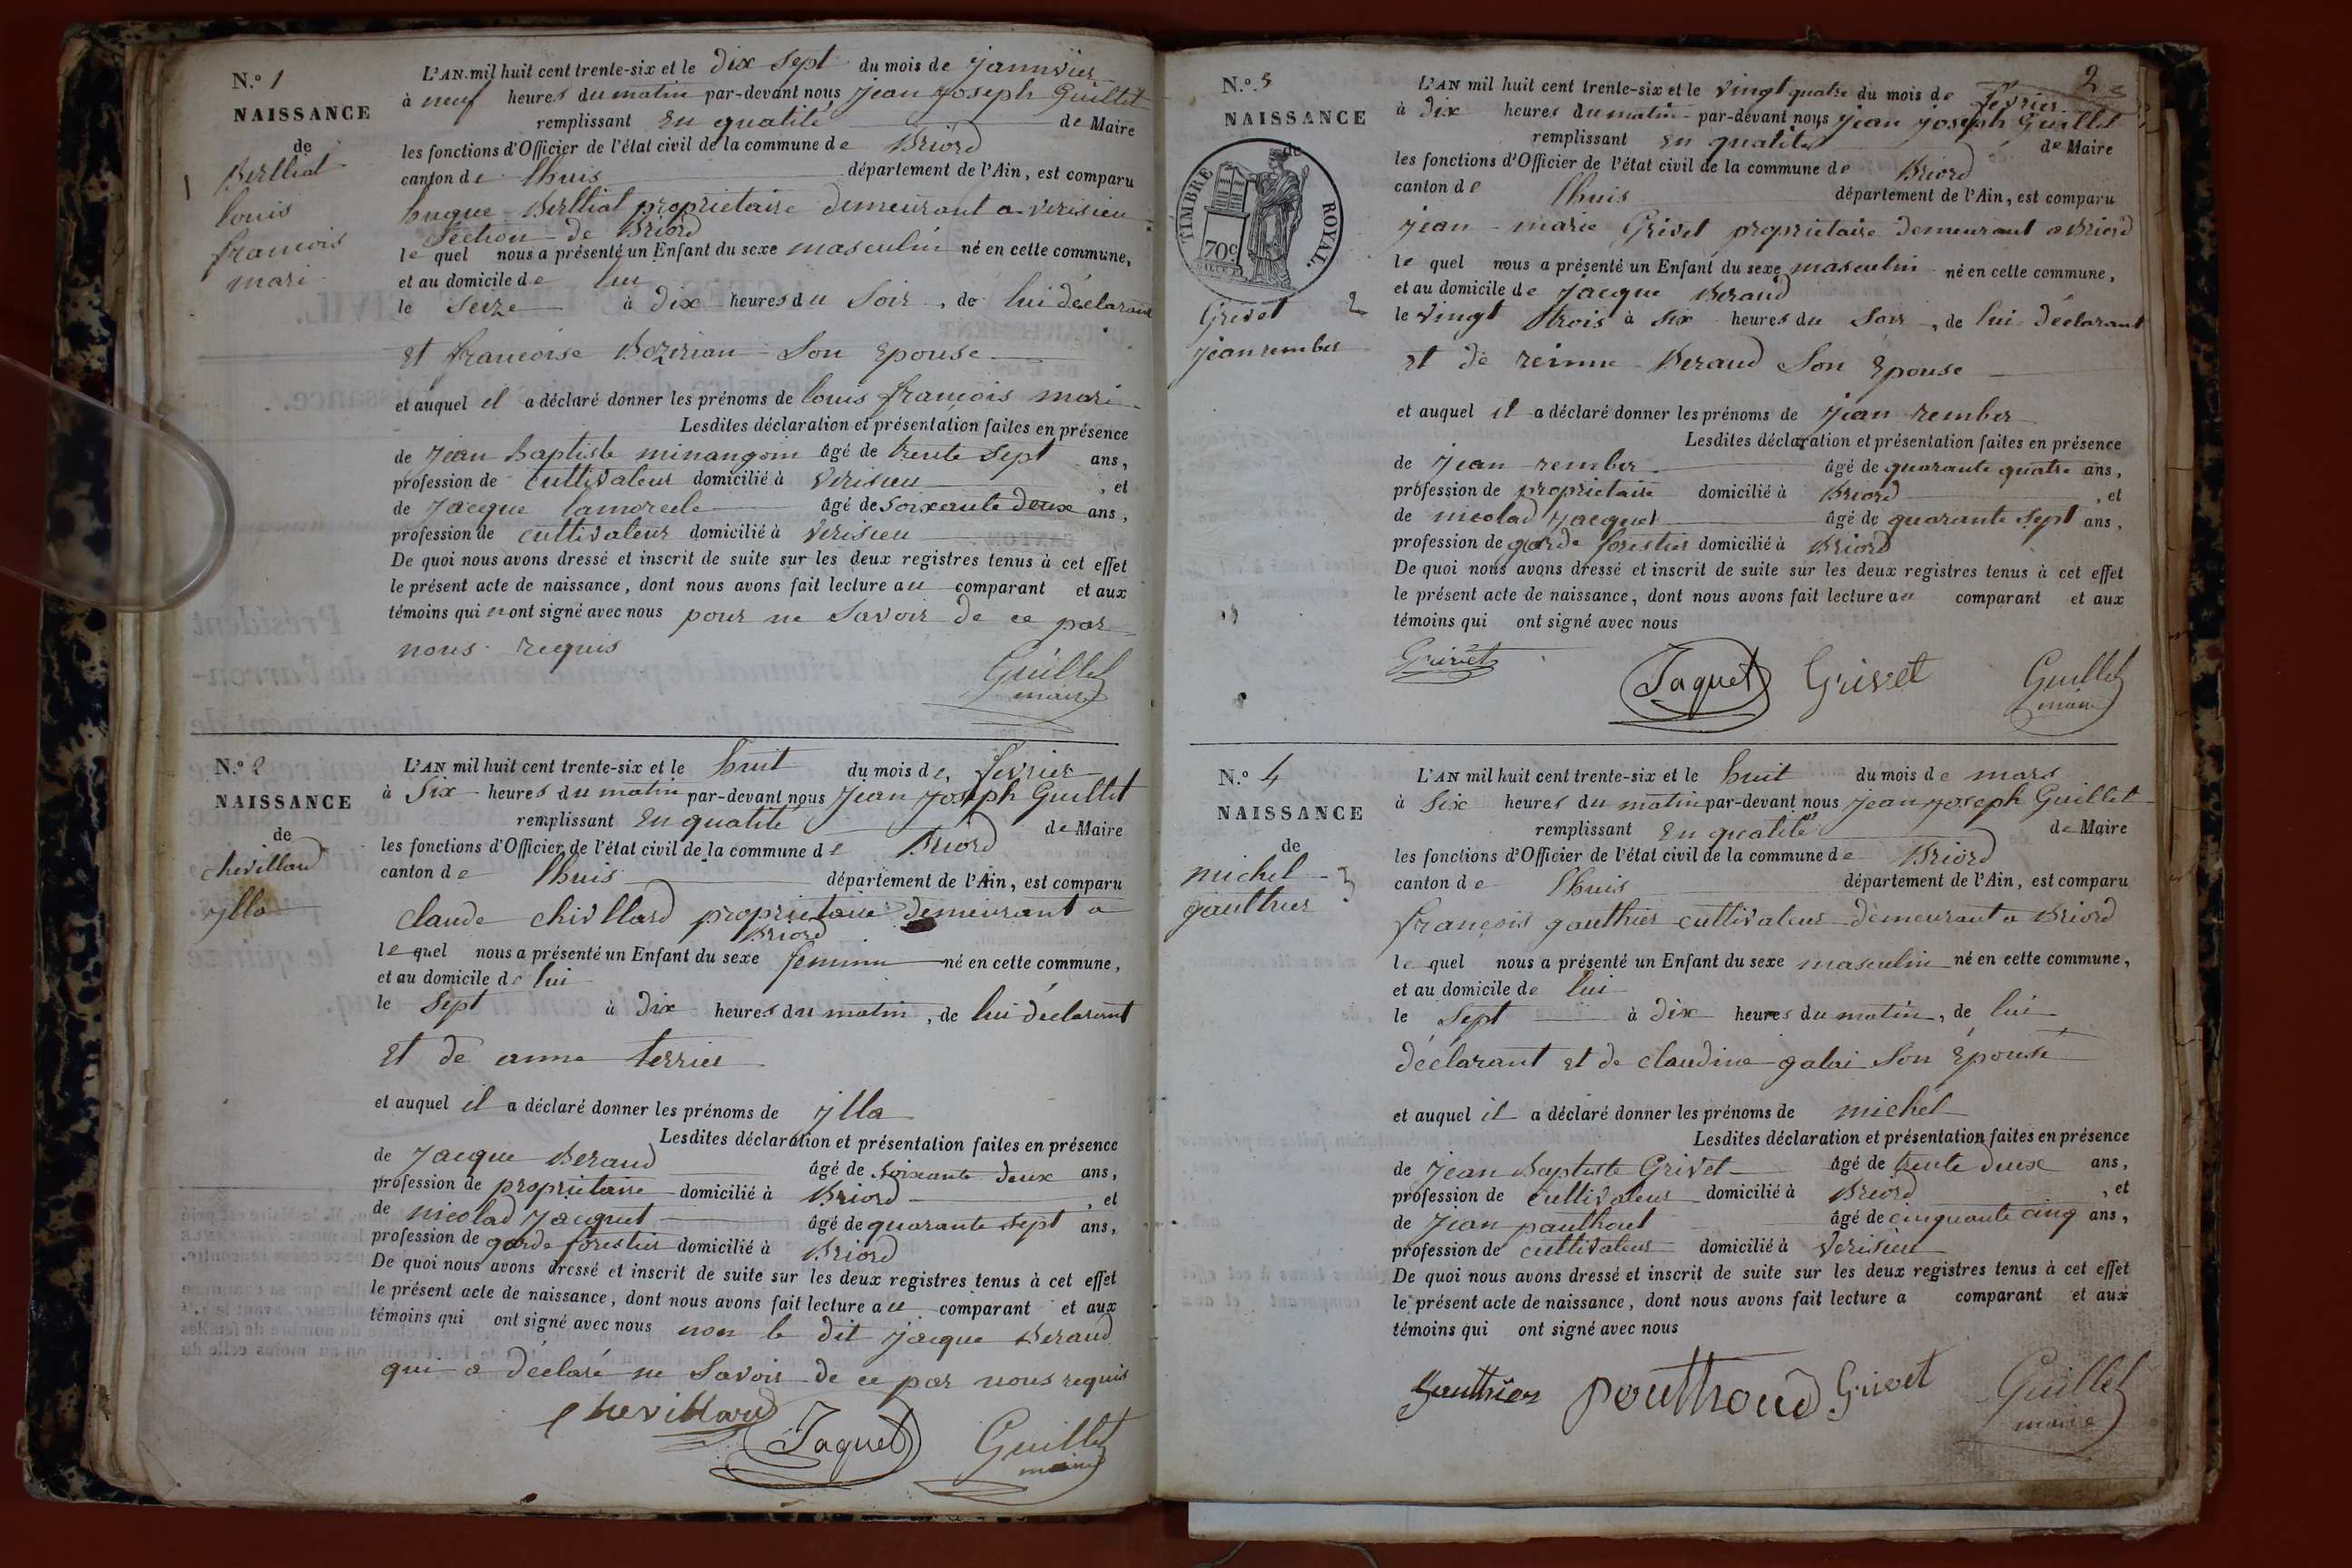 N.o 1
NAISSANCE
de
Berlliat
louis
francois
mari
L'AN mil huit cent trente-six et le dix sept du mois de jannvier
à neuf heures du matin par-devant nous jean joseph Guillet
remplissant en qualité de Maire
les fonctions d'Officier de l'état civil de la commune de Briord
canton de lhuis département de l'Ain, est comparu
hugue Berlliat proprietaire demeurant a verisieu
section de Briord
le quel nous a présenté un Enfant du sexe masculin né en cette commune,
et au domicile de lui
le seize à dix heures du soir, de lui déclarant
et francoise Bozirian son epouse
et auquel il a déclaré donner les prénoms de louis francois mari
Lesdites déclaration et présentation faites en présence
de jean baptiste minangoin âgé de trente sept ans,
profession de cultivateur domicilié à verisieu, et
de jacque lamorele âgé de soixante deux ans,
profession de cultivateur domicilié à verisieu
De quoi nous avons dressé et inscrit de suite sur les deux registres tenus à cet effet
le présent acte de naissance, dont nous avons fait lecture au comparant et aux
témoins qui n ont signé avec nous pour ne savoir de ce par
nous requis
Guillet
maire
N.o 2
NAISSANCE
de
chevilland
ylla
L'AN mil huit cent trente-six et le huit du mois de fevrier
à six heures du matin par-devant nous jean joseph Guillet
remplissant en qualité de Maire
les fonctions d'Officier de l'état civil de la commune de Briord
canton de lhuis département de l'Ain, est comparu
claude chivllard proprietaire demeurant a
Briord
le quel nous a présenté un Enfant du sexe feminin né en cette commune,
et au domicile de lui
le sept à dix heures du matin, de lui déclarant
et de anne terrier
et auquel il a déclaré donner les prénoms de ylla
Lesdites déclaration et présentation faites en présence
de jacque Beraud âgé de soixante deux ans,
profession de proprietaire domicilié à Briord, et
de nicolad jacquet âgé de quarante sept ans,
profession de garde forestier domicilié à Briord
De quoi nous avons dressé et inscrit de suite sur les deux registres tenus à cet effet
le présent acte de naissance, dont nous avons fait lecture au comparant et aux
témoins qui ont signé avec nous non le dit jacque Beraud
qui a déclaré ne savoir de ce par nous requis
chevilland Jaquet Guillet
maire
2
N.o 3
NAISSANCE
de
TIMBRE ROYAL.
70c
Grivet 2
jean rember
L'AN mil huit cent trente-six et le vingt quatre du mois de fevrier
à dix heures du matin par-devant nous jean joseph Guillet
remplissant en qualité de Maire
les fonctions d'Officier de l'état civil de la commune de Briord
canton de lhuis département de l'Ain, est comparu
jean marie Grivet proprietaire demeurant a Briord
le quel nous a présenté un Enfant du sexe masculin né en cette commune,
et au domicile de jacque Beraud
le vingt trois à six heures du soir, de lui déclarant
et de reinne Beraud son epouse
et auquel il a déclaré donner les prénoms de jean rember
Lesdites déclaration et présentation faites en présence
de jean rember âgé de quarante quatre ans,
profession de proprietaire domicilié à Briord, et
de nicolad jacquet âgé de quarante sept ans,
profession de garde forestier domicilié à Briord
De quoi nous avons dressé et inscrit de suite sur les deux registres tenus à cet effet
le présent acte de naissance, dont nous avons fait lecture au comparant et aux
témoins qui ont signé avec nous
Grivet Jaquet Grivet Guillet
maire
N.o 4
NAISSANCE
de
michel 3
gauthier
L'AN mil huit cent trente-six et le huit du mois de mars
à six heures du matin par-devant nous jean joseph Guillet
remplissant en qualité de Maire
les fonctions d'Officier de l'état civil de la commune de Briord
canton de lhuis département de l'Ain, est comparu
françois gauthier cultivateur demeurant a Briord
le quel nous a présenté un Enfant du sexe masculin né en cette commune,
et au domicile de lui
le sept à dix heures du matin, de lui
déclarant et de claudine galai son épouse
et auquel il a déclaré donner les prénoms de michel
Lesdites déclaration et présentation faites en présence
de jean Baptiste Grivet âgé de trente deux ans,
profession de cultivateur domicilié à Briord, et
de jean pauthout âgé de cinquante cinq ans,
profession de cultivateur domicilié à verisieu
De quoi nous avons dressé et inscrit de suite sur les deux registres tenus à cet effet
le présent acte de naissance, dont nous avons fait lecture a comparant et aux
témoins qui ont signé avec nous
Gauthier pouthoud Grivet Guillet
maire